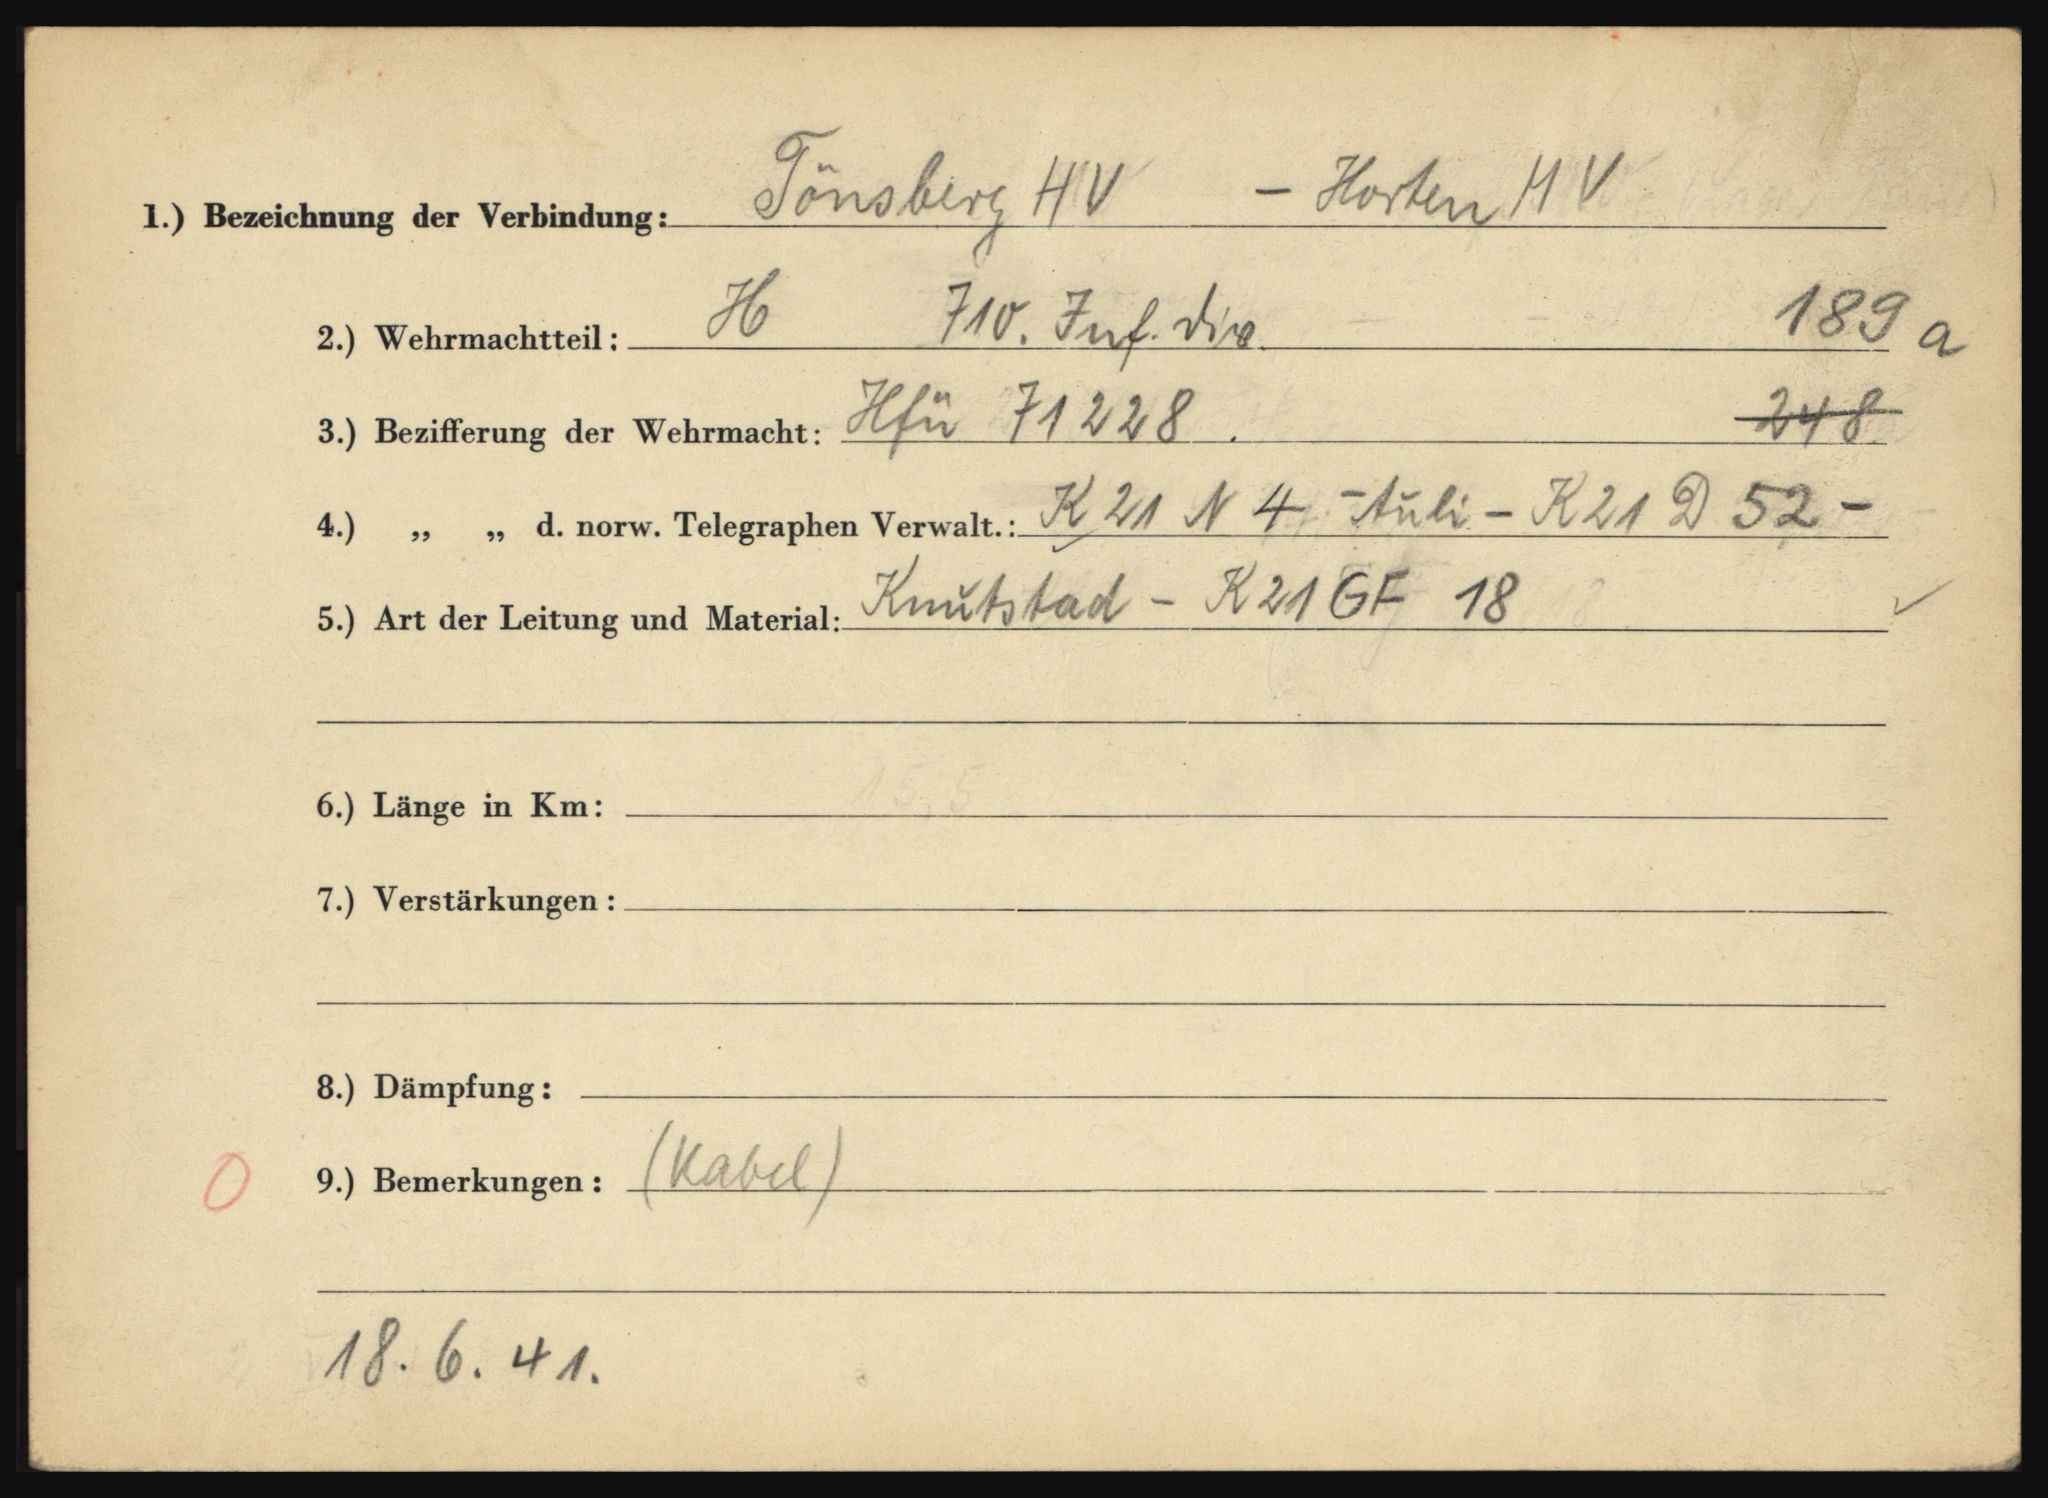 1.) Bezeichnung der Verbindung: Tönsberg HV – Horten MV
2.) Wehrmachtteil: H 710. Inf. div. 189 a
3.) Bezifferung der Wehrmacht: Hfü 71228. 248
4.) „ „ d. norw. Telegraphen Verwalt.: K 21 N 4 – Auli – K 21 D 52 –
5.) Art der Leitung und Material: Knutstad – K 21 GF 18 ✓
6.) Länge in Km: 15,5
7.) Verstärkungen:
8.) Dämpfung:
0 9.) Bemerkungen: (Kabel)
18. 6. 41.